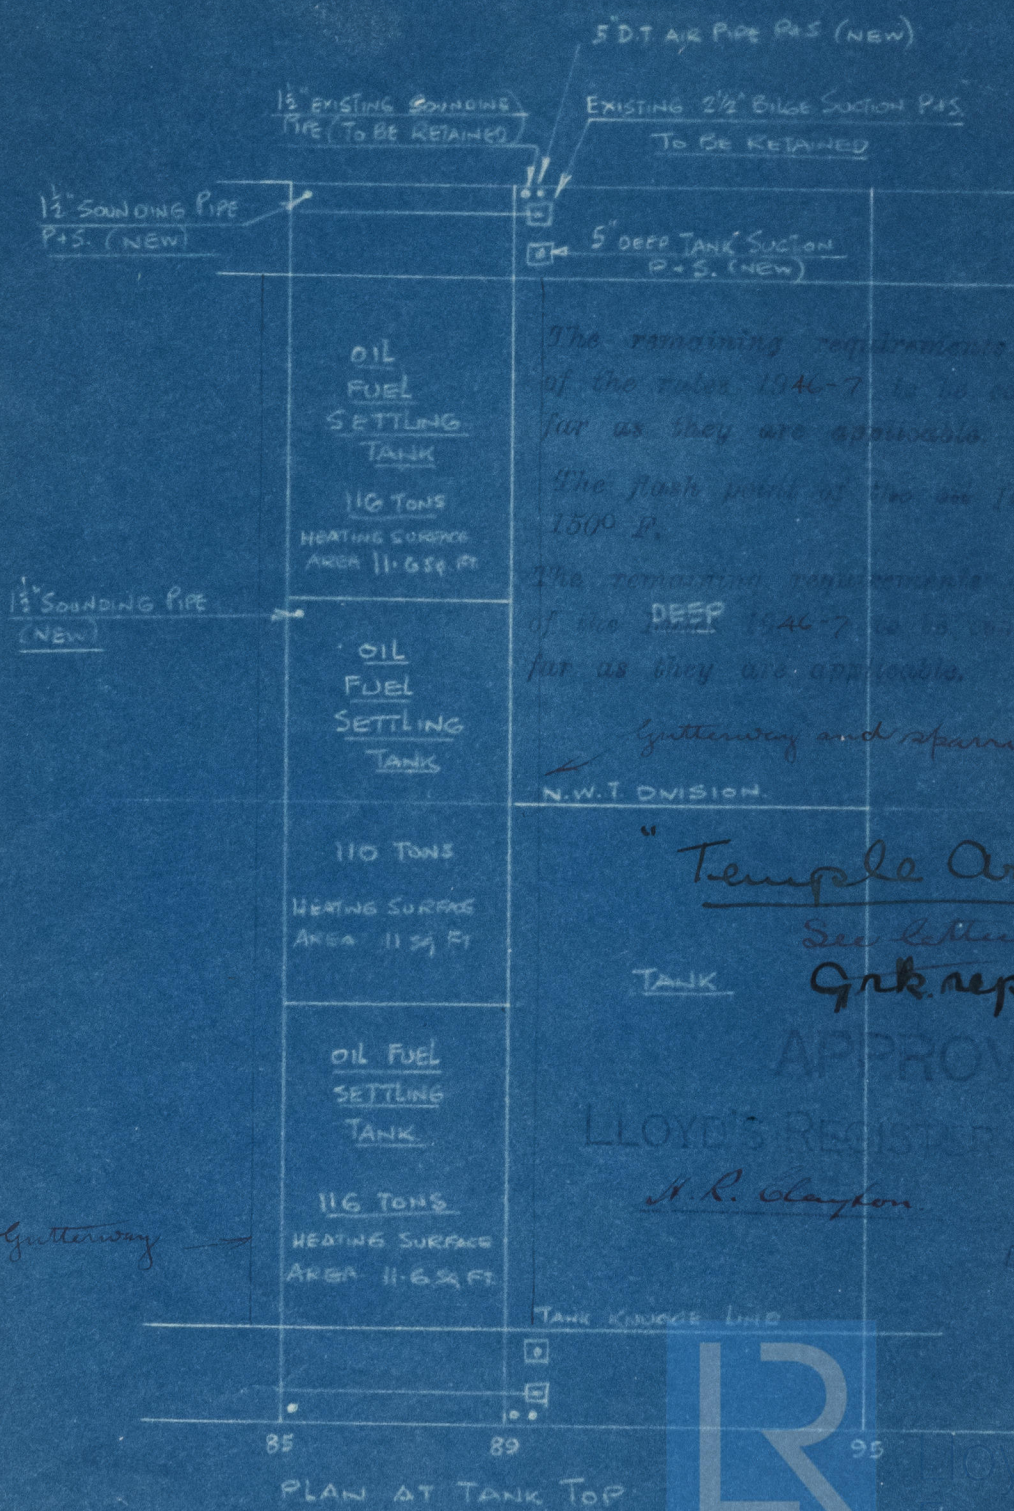 5" D.T AIR PIPE P+S (NEW)
1½" EXISTING SOUNDING
PIPE (TO BE RETAINED)
EXISTING 2½" BILGE SUCTION P+S.
TO BE RETAINED
1½" SOUNDING PIPE
P+S. (NEW)
5" DEEP TANK SUCTION
P+S. (NEW)
OIL
FUEL
SETTLING
TANK
116 TONS
HEATING SURFACE
AREA 11.6 SQ. FT.
The remaining requirements
of the rules 1946-7 to be
far as they are applicable.
The flash point of the oil
150° F.
The remaining requirements
of the 1946-7 to be
far as they are applicable.
1½" SOUNDING PIPE
(NEW)
DEEP
OIL
FUEL
SETTLING
TANK
Gutterway and
N.W.T. DIVISION.
110 TONS
HEATING SURFACE
AREA 11 SQ FT
"Temple
See
TANK
APPROV
LLOYD'S REGISTER
OIL FUEL
SETTLING
TANK
116 TONS
HEATING SURFACE
AREA 11.6 SQ FT.
H.R. Clayton.
Gutterway
TANK KNUCKLE LINE
LR
85 89 95
PLAN AT TANK TOP